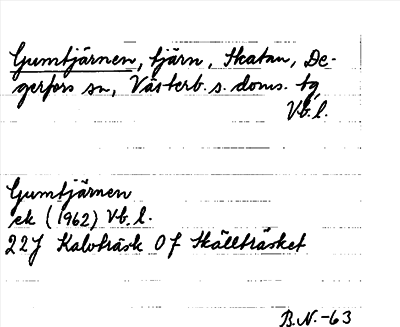 Gumtjärnen, tjärn, Skatan, De-
gerfors sn, Västerb. s. doms. tg,
Vb. l.
Gumtjärnen
ek (1962) Vb. l.
22J Kalvträsk 0f Skällträsket
B.N.-63